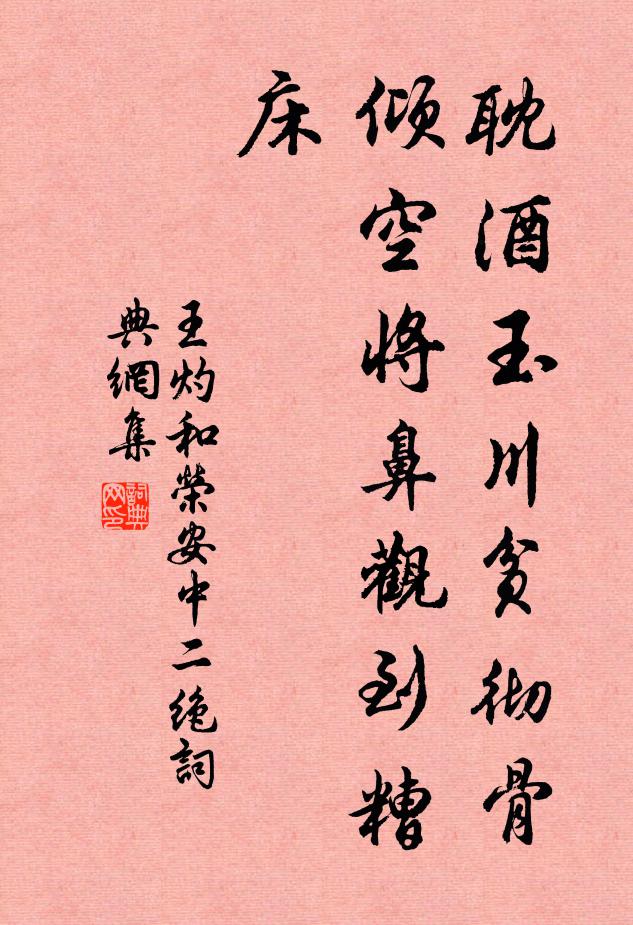 耽酒玉川貧彻骨
倾空将鼻觀到糟
床
王灼和榮安中二绝詞
典網集
詞典
网印